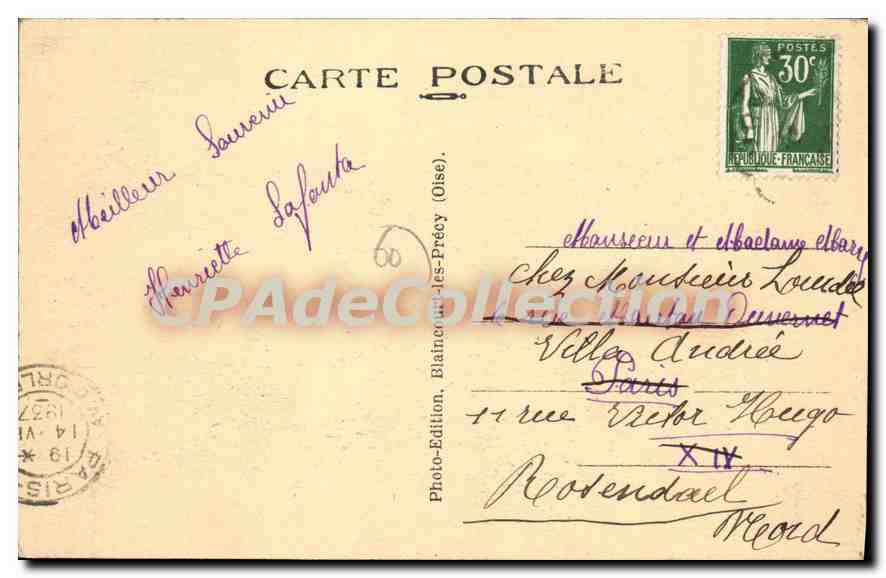 CARTE POSTALE
POSTES
30c
RÉPUBLIQUE-FRANÇAISE
Meilleur Souvenir
Henriette Lafonta
60
Photo-Edition, Blaincourt-les-Précy (Oise).
Monsieur et Madame Mary
chez Monsieur
rue Mouton Duvernet
Villa Andrée
Paris
11 rue Victor Hugo
XIV
Rosendael
Nord
CPAdeCollection
PARIS
19
14 - VI
1937
AV. D'ORLE